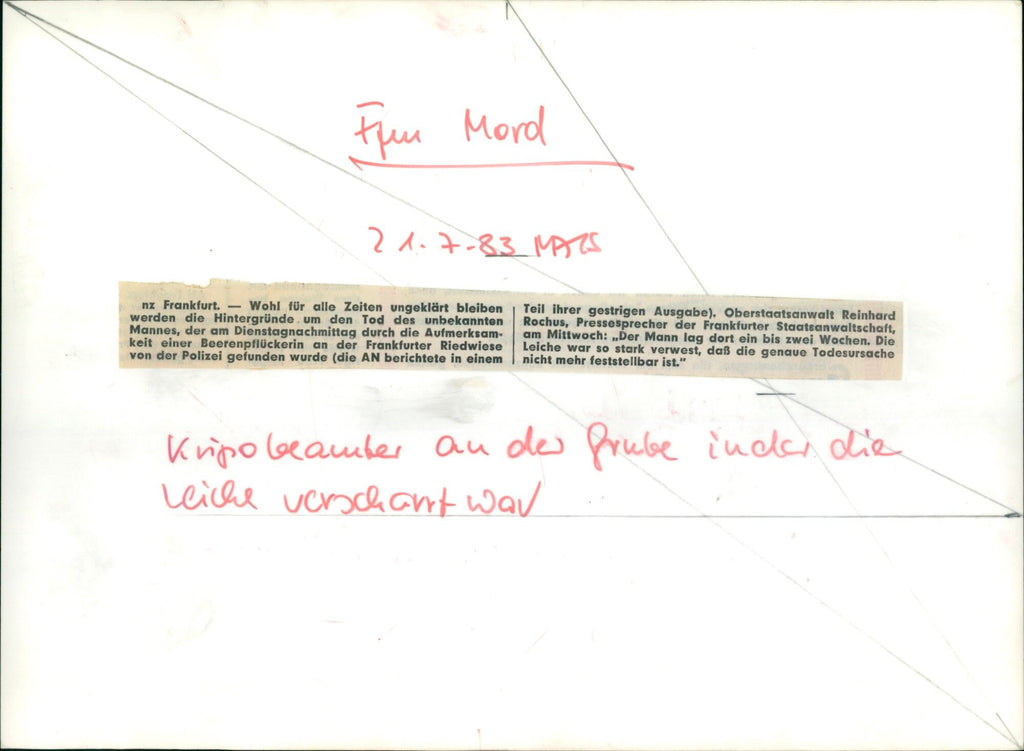 Ffm Mord
21.7-83
nz Frankfurt. — Wohl für alle Zeiten ungeklärt bleiben
werden die Hintergründe um den Tod des unbekannten
Mannes, der am Dienstagnachmittag durch die Aufmerksam-
keit einer Beerenpflückerin an der Frankfurter Riedwiese
von der Polizei gefunden wurde (die AN berichtete in einem
Teil ihrer gestrigen Ausgabe). Oberstaatsanwalt Reinhard
Rochus, Pressesprecher der Frankfurter Staatsanwaltschaft,
am Mittwoch: „Der Mann lag dort ein bis zwei Wochen. Die
Leiche war so stark verwest, daß die genaue Todesursache
nicht mehr feststellbar ist.“
Kripobeamter an der Grube in der die
Leiche verscharrt war